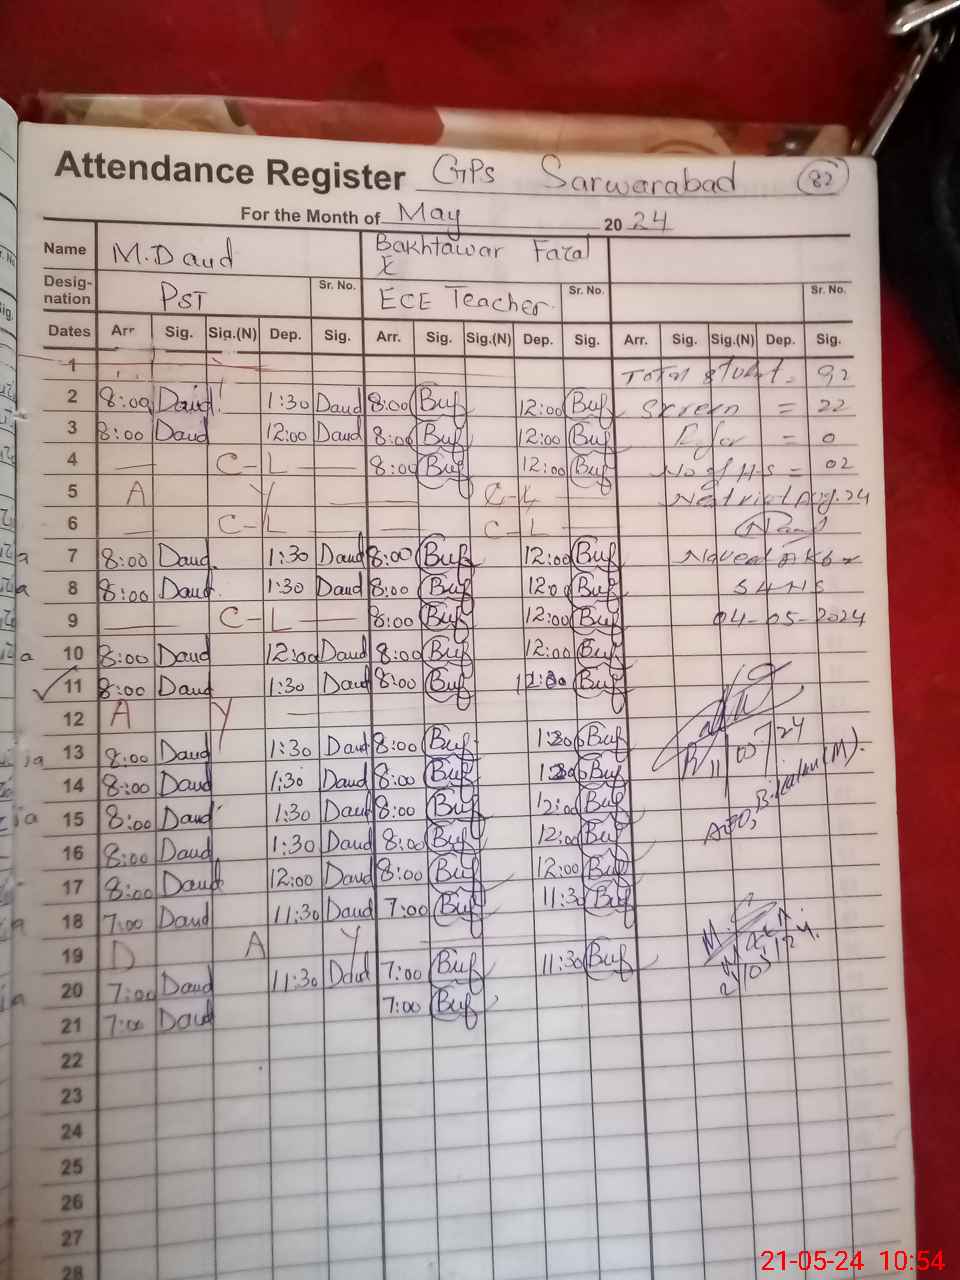 Attendance Register GPS Sarwarabad 82
For the Month of May 20 24
Name M. Daud Bakhtawar Fazal
Desig-nation PST Sr. No. ECE Teacher Sr. No. Sr. No.
Dates Arr Sig. Sig.(N) Dep. Sig. Arr. Sig. Sig.(N) Dep. Sig. Arr. Sig. Sig.(N) Dep. Sig.
1 Total = 92
2 8:00 Daud 1:30 Daud 8:00 Buf 12:00 Buf Screen = 22
3 8:00 Daud 12:00 Daud 8:00 Buf 12:00 Buf = 0
4 C-L 8:00 Buf 12:00 Buf No of H.S = 02
5 A Y
6 C-L C-L
7 8:00 Daud 1:30 Daud 8:00 Buf 12:00 Buf
8 8:00 Daud 1:30 Daud 8:00 Buf 12:00 Buf
9 C-L 8:00 Buf 12:00 Buf 04-05-2024
10 8:00 Daud 12:00 Daud 8:00 Buf 12:00 Buf
11 8:00 Daud 1:30 Daud 8:00 Buf Buf
12 A Y
13 8:00 Daud 1:30 Daud 8:00 Buf Buf
14 8:00 Daud 1:30 Daud 8:00 Buf Buf
15 8:00 Daud 1:30 Daud 8:00 Buf 12:00 Buf
16 8:00 Daud 1:30 Daud 8:00 Buf 12:00 Buf
17 8:00 Daud 12:00 Daud 8:00 Buf 12:00 Buf
18 7:00 Daud 11:30 Daud 7:00 Buf 11:30 Buf
19 D A Y
20 7:00 Daud 11:30 Daud 7:00 Buf 11:30 Buf
21 7:00 Daud 7:00 Buf
22
23
24
25
26
27
28
21-05-24 10:54